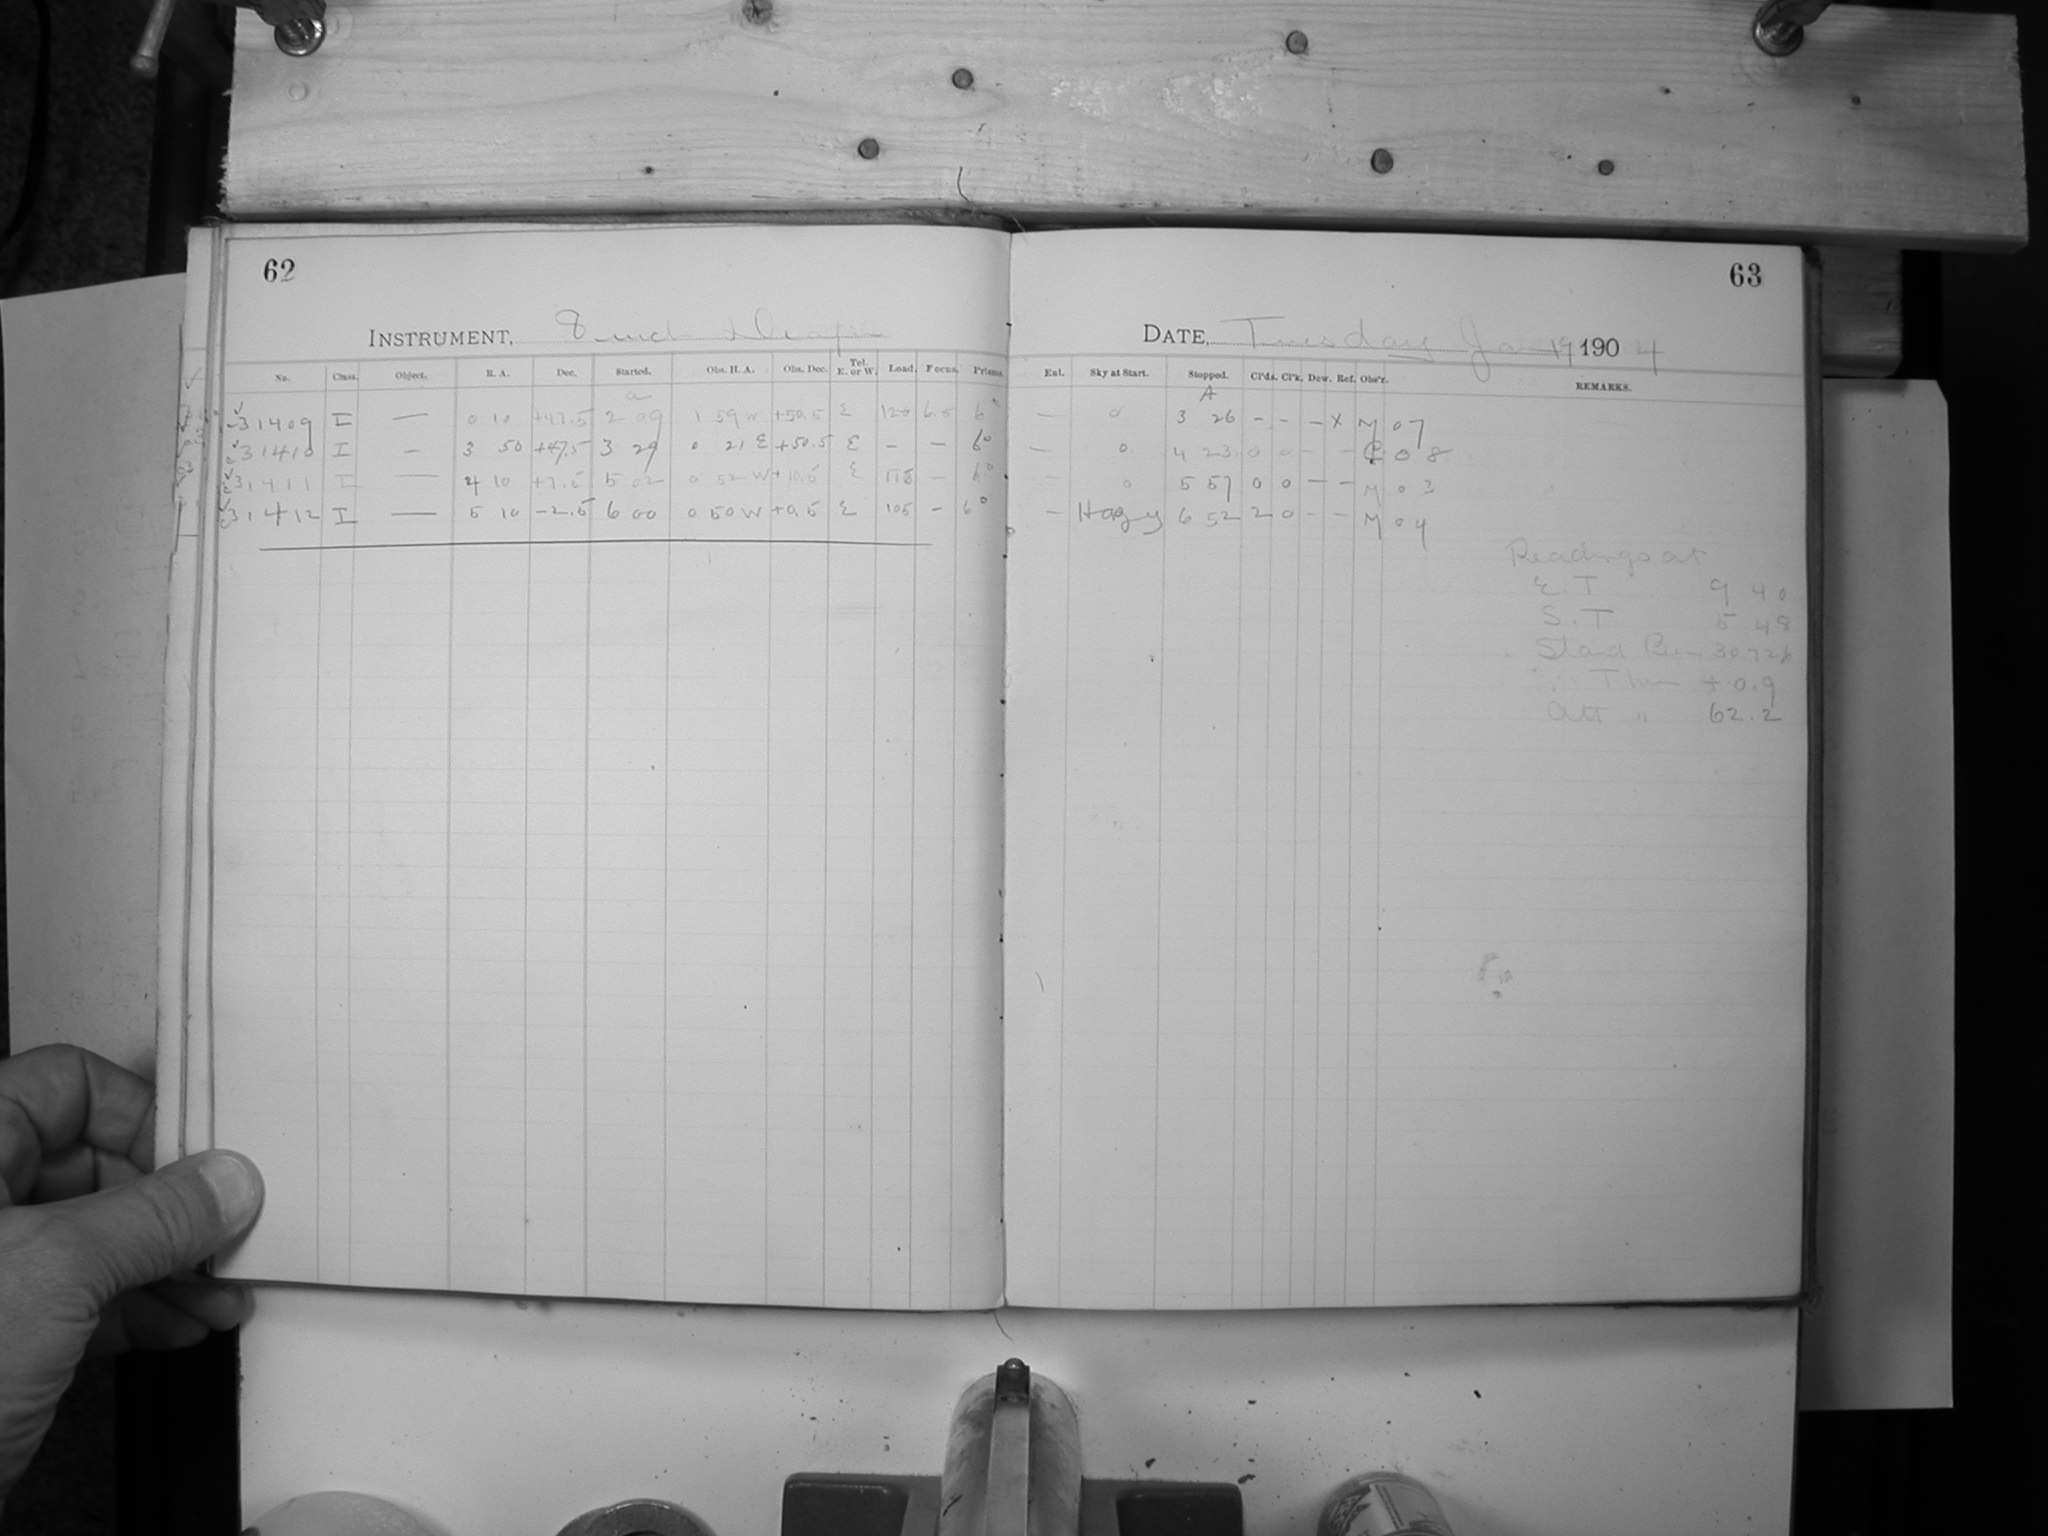 62
INSTRUMENT, 8 inch Draper
No. Class. Object. R. A. Dec. Started. Obs. H. A. Obs. Dec. Tel. E. or W. Load. Focus. Prisms.
a
31409 I — 0 10 +47.5 2 09 1 59 W +50.5 E 120 6.5 6°
31410 I — 3 50 +47.5 3 29 0 21 E +50.5 E – – 6°
31411 I — 4 10 +7.5 5 02 0 52 W +10.5 E 118 – 6°
31412 I — 5 10 –2.5 6 00 0 50 W +0.5 E 105 – 6°
63
DATE, Tuesday Jan 19 1904
Enl. Sky at Start. Stopped. Cl'ds. Cl'k. Dew. Ref. Obs'r. REMARKS.
A
— 0 3 26 – – – X M 07
— 0 4 23 0 0 – – 08
– 0 5 57 0 0 – – M 03
– Hazy 6 52 2 0 – – M 04
Readings at
E. T 9 40
S. T 5 48
Stand Bar 30.726
" Ther +0.9
Att " 62.2